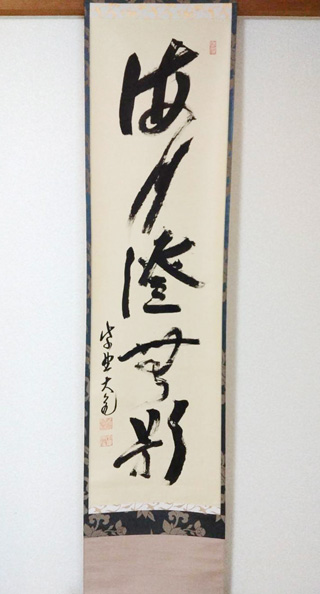 海月澄無影
紫野大亀